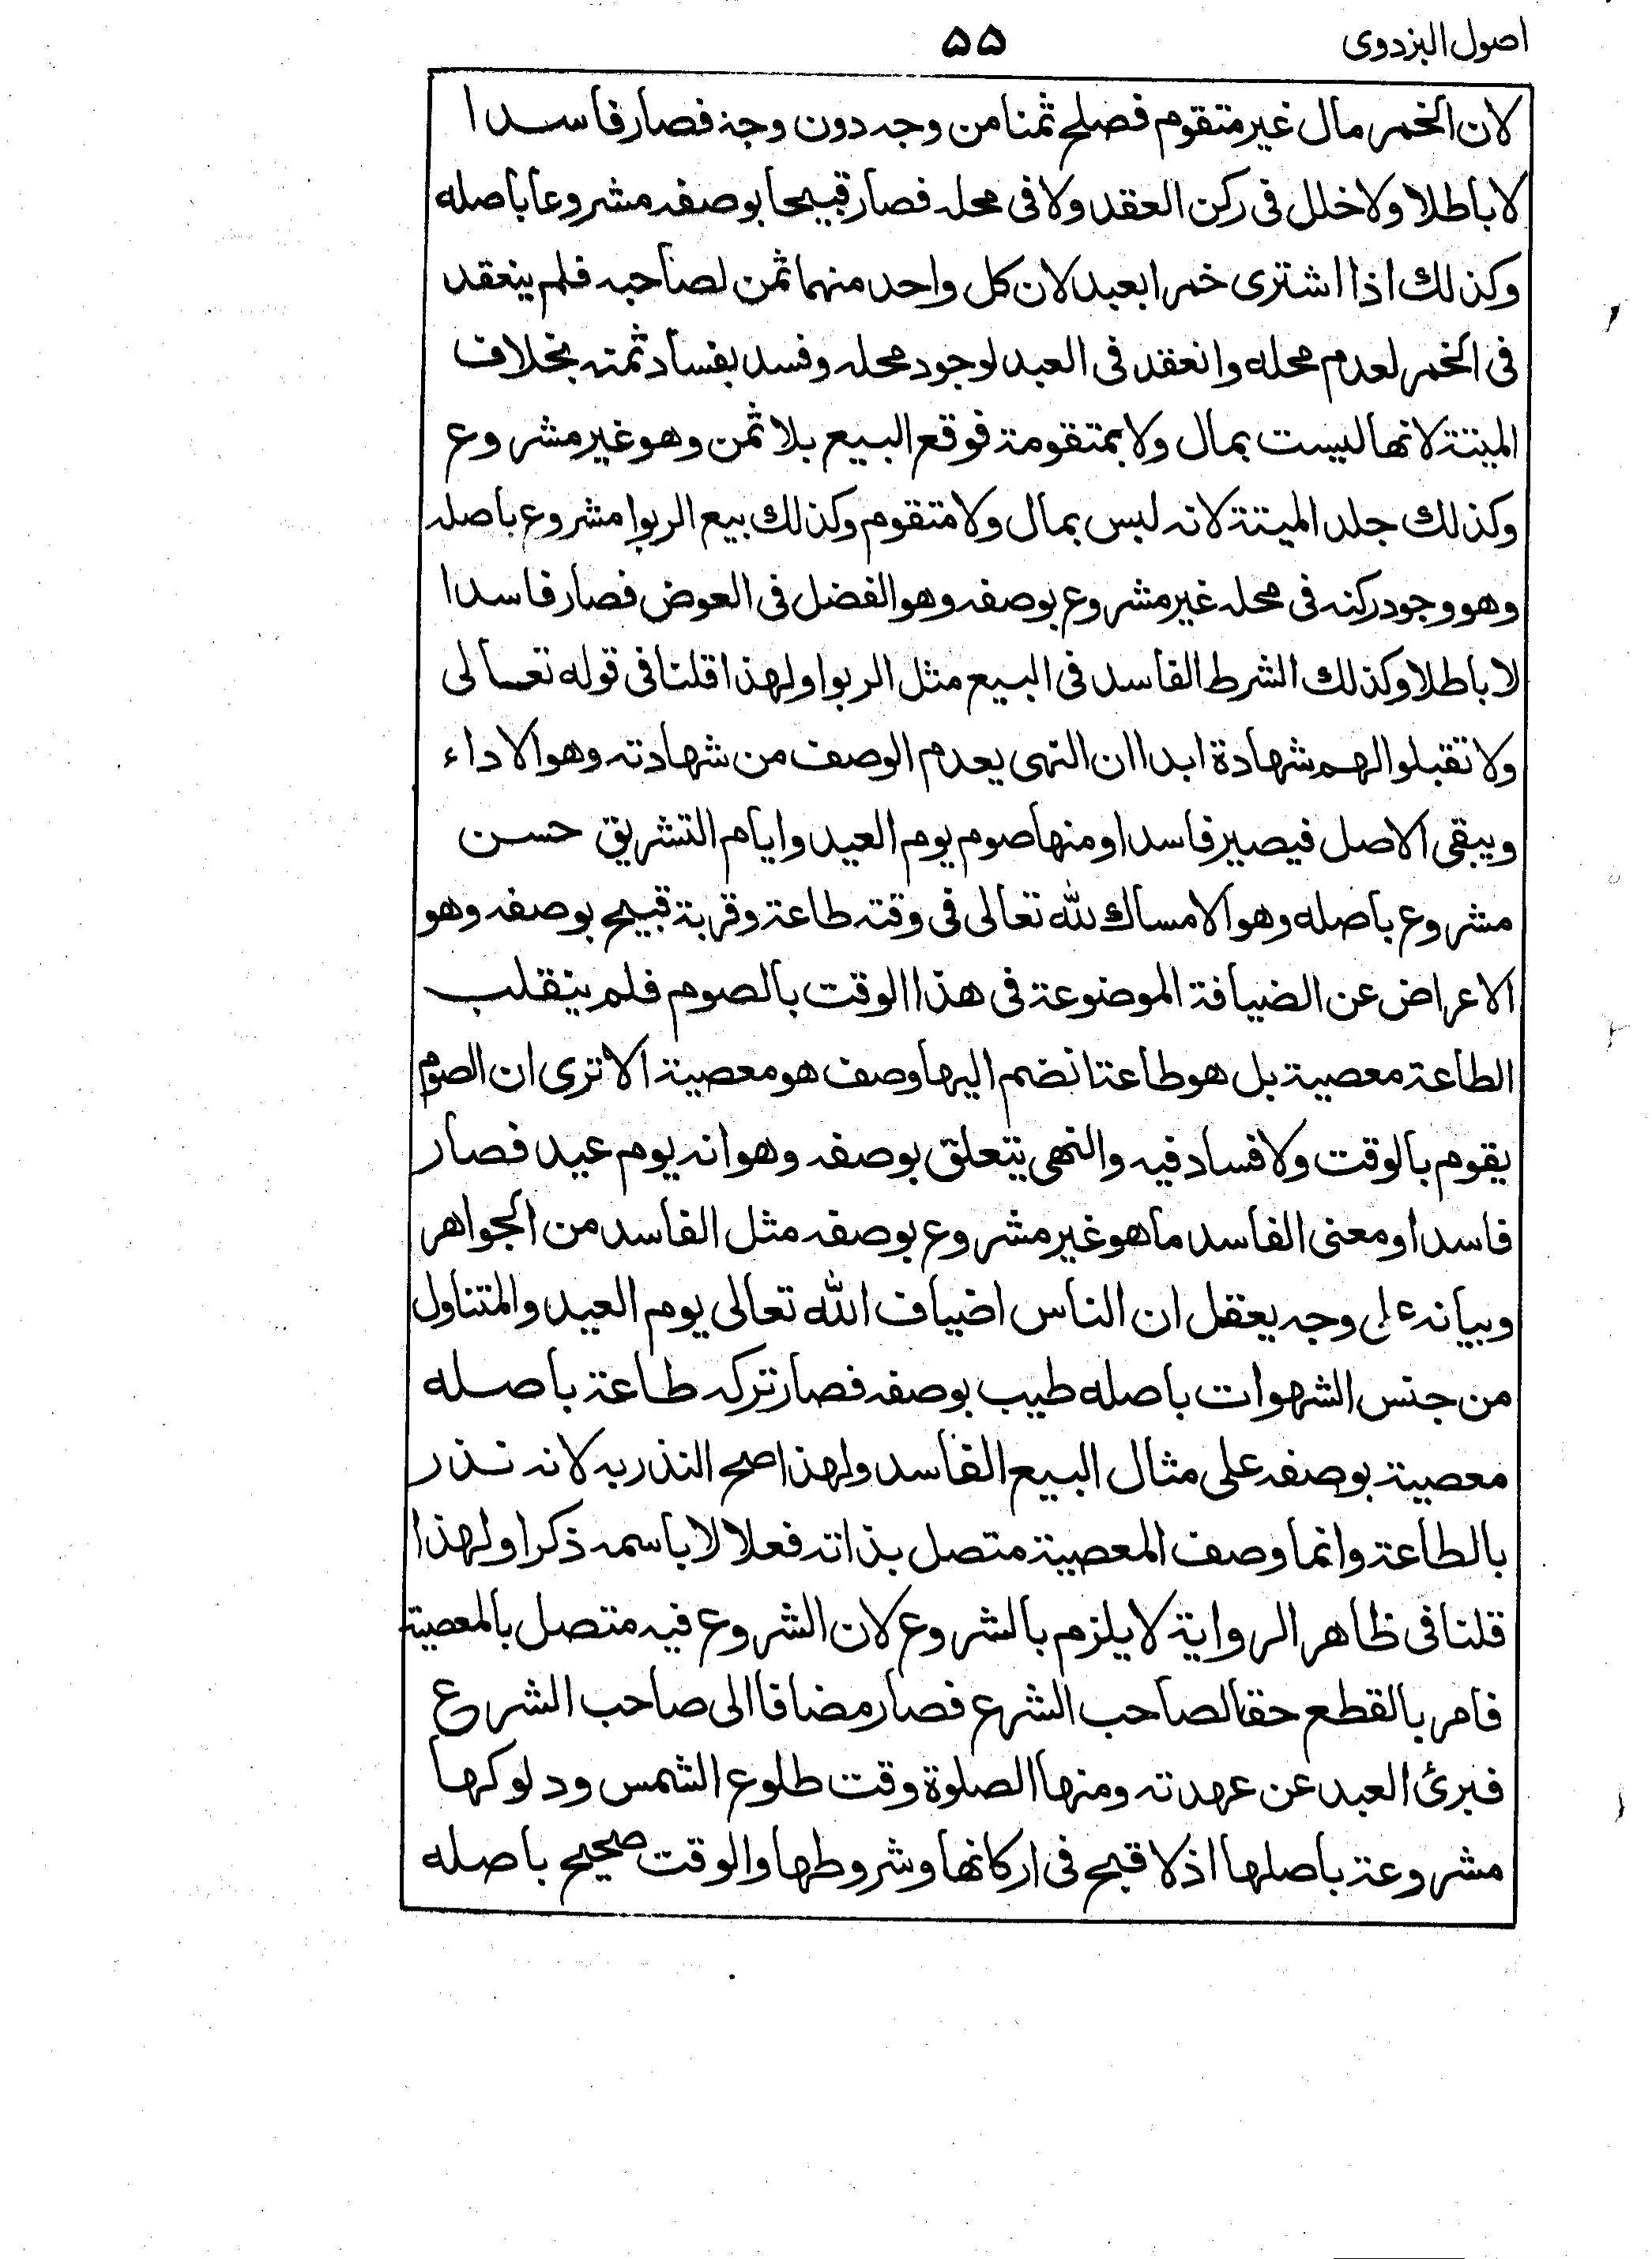 اصول البزدوی ۵۵
لان الخمر مال غير متقوم فصلح ثمنا من وجه دون وجه فصار فاسدا
لا باطلا ولا خلل فى ركن العقد ولا فى محله فصار قبيحا بوصفه مشروعا باصله
وكذلك اذا اشترى خمرا بعبد لان كل واحد منهما ثمن لصاحبه فلم ينعقد
فى الخمر لعدم محله وانعقد فى العبد لوجود محله وفسد بفساد ثمنه بخلاف
الميتة لانها ليست بمال ولا بمتقومة فوقع البيع بلا ثمن وهو غير مشروع
وكذلك جلد الميتة لانه ليس بمال ولا متقوم وكذلك بيع الربوا مشروع باصله
وهو وجود ركنه فى محله غير مشروع بوصفه وهو الفضل فى العوض فصار فاسدا
لا باطلا وكذلك الشرط الفاسد فى البيع مثل الربوا ولهذا قلنا فى قوله تعالى
ولا تقبلوا لهم شهادة ابدا ان النهى يعدم الوصف من شهادته وهو الاداء
ويبقى الاصل فيصير فاسدا ومنها صوم يوم العيد وايام التشريق حسن
مشروع باصله وهو الامساك لله تعالى فى وقته طاعة وقربة قبيح بوصفه وهو
الاعراض عن الضيافة الموضوعة فى هذا الوقت بالصوم فلم ينقلب
الطاعة معصية بل هو طاعة انضم اليها وصف هو معصية الا ترى ان الصوم
يقوم بالوقت ولا فساد فيه والنهى يتعلق بوصفه وهو انه يوم عيد فصار
فاسدا ومعنى الفاسد ما هو غير مشروع بوصفه مثل الفاسد من الجواهر
وبيانه على وجه يعقل ان الناس اضياف الله تعالى يوم العيد والمتناول
من جنس الشهوات باصله طيب بوصفه فصار تركه طاعة باصله
معصية بوصفه على مثال البيع الفاسد ولهذا صح النذر به لانه نذر
بالطاعة وانما وصف المعصية متصل بذاته فعلا لا باسمه ذكرا ولهذا
قلنا فى ظاهر الرواية لا يلزم بالشروع لان الشروع فيه متصل بالمعصية
فامر بالقطع حقا لصاحب الشرع فصار مضافا الى صاحب الشرع
فبرئ العبد عن عهدته ومنها الصلوة وقت طلوع الشمس ودلوكها
مشروعة باصلها اذ لا قبح فى اركانها وشروطها والوقت صحيح باصله